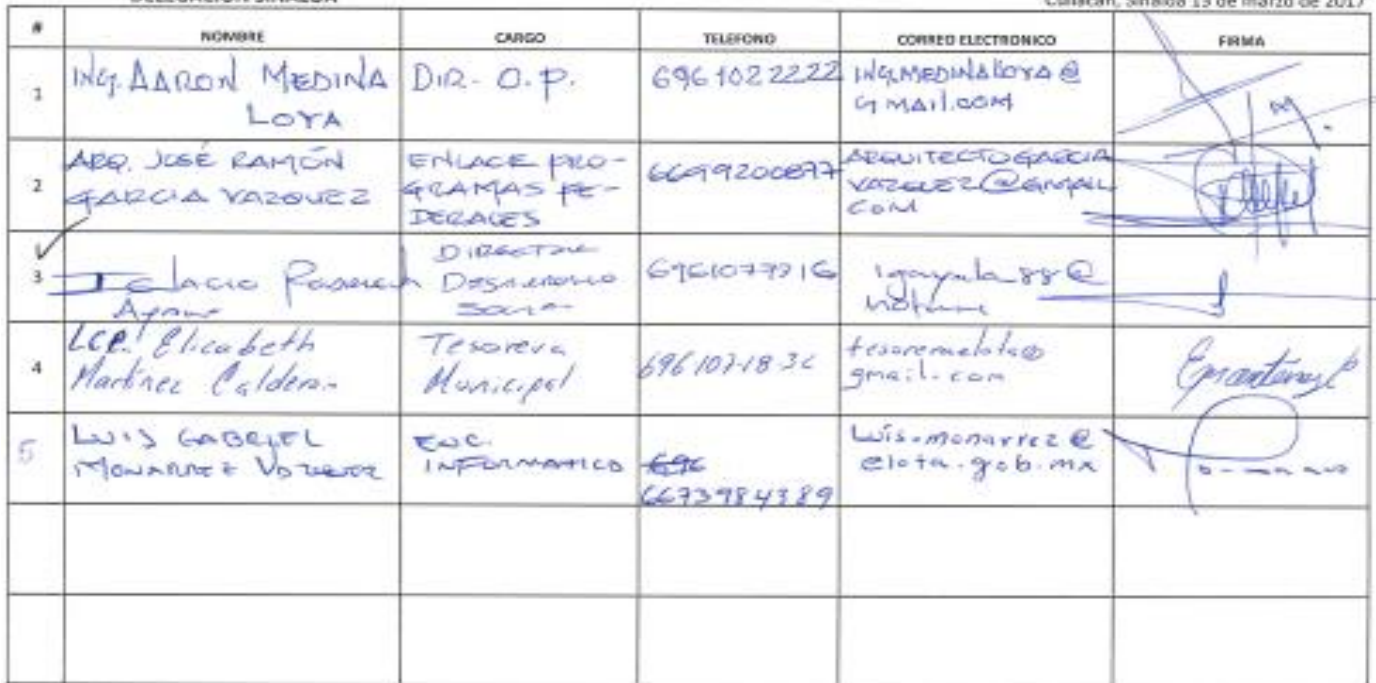 DELEGACIÓN SINALOA
Culiacán, Sinaloa 15 de marzo de 2017
# NOMBRE CARGO TELEFONO CORREO ELECTRONICO FIRMA
1 ING. AARON MEDINA LOYA DIR- O.P. 6961022222 ING.MEDINALOYA@GMAIL.COM
2 ARQ. JOSÉ RAMÓN GARCIA VAZQUEZ ENLACE PRO-GRAMAS FE-DERALES ARQUITECTOGARCIAVAZQUEZ@GMAIL.COM
3 DIRECTOR Desarrollo Social igayala88@
4 Elizabeth Martínez Calderon Tesorera Municipal gmail.com
5 LUIS GABRIEL MONARREZ ENC. INFORMATICO 696 6673984389 Luis.monarrez@elota.gob.mx